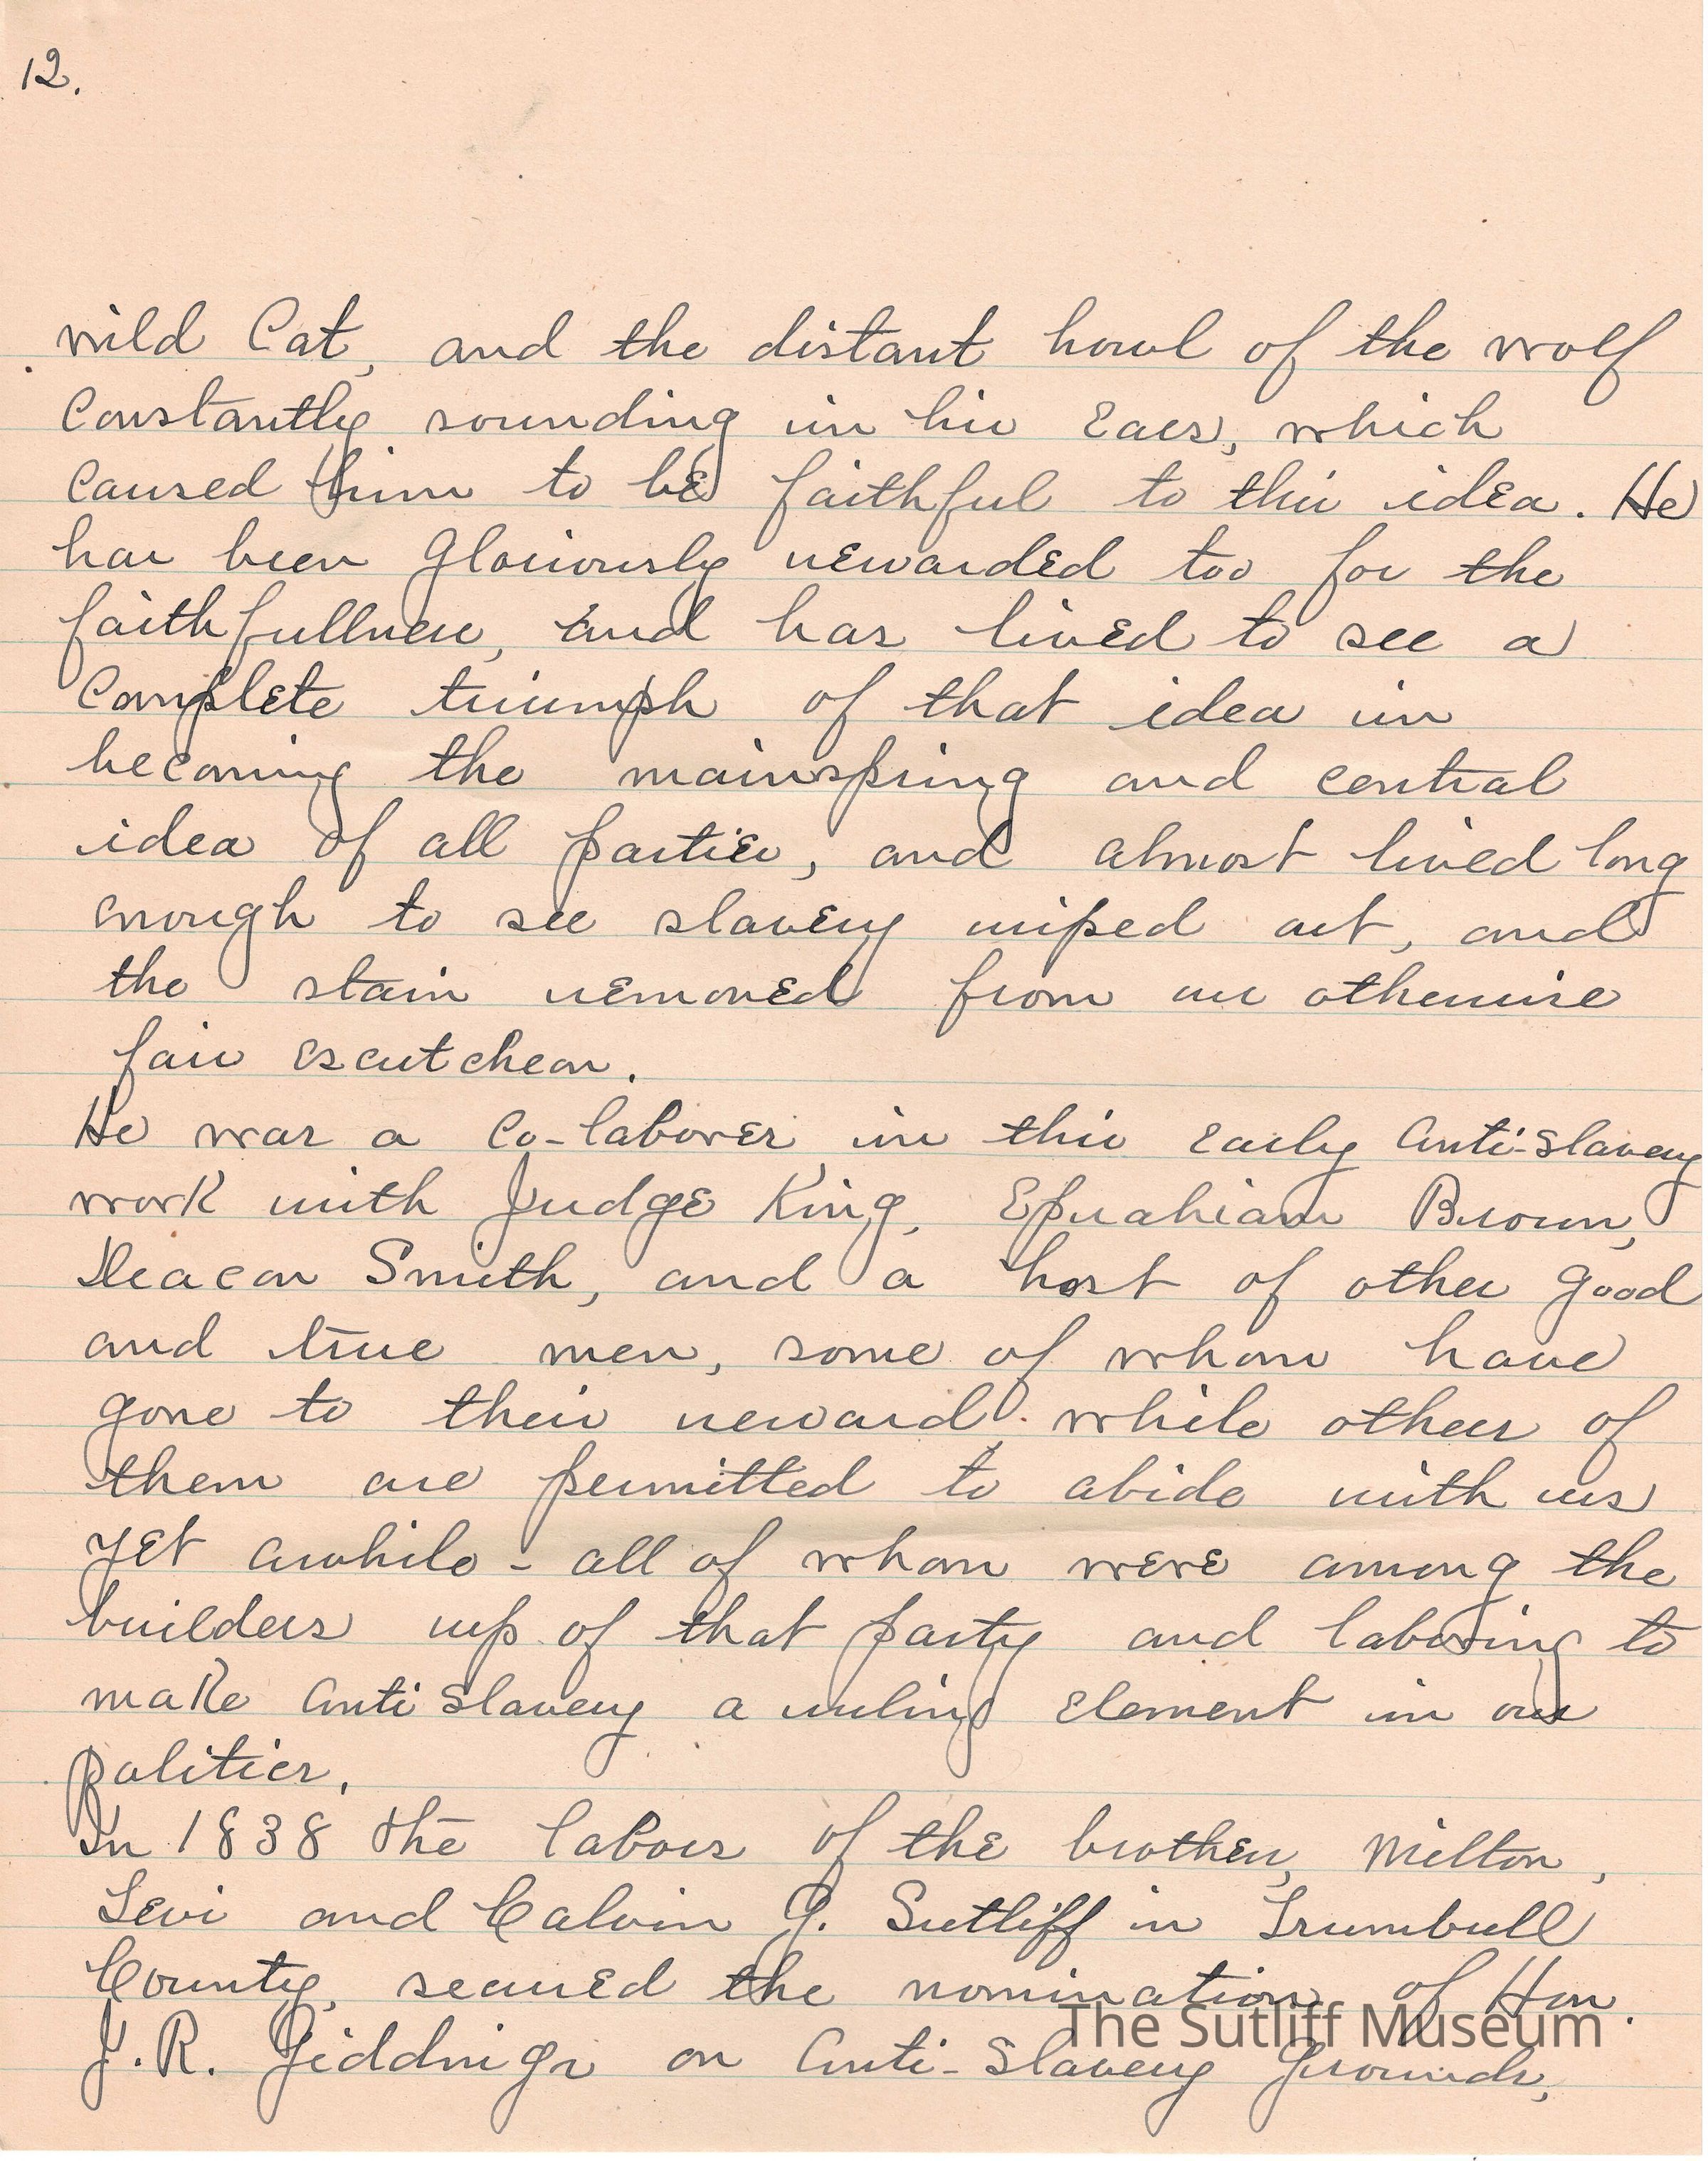 12.
wild Cat, and the distant howl of the wolf
Constantly sounding in his Ears, which
Caused him to be faithful to this idea. He
has been Gloriously rewarded too for the
faithfullness, and has lived to see a
Complete triumph of that idea in
becoming the mainspring and central
idea of all parties, and almost lived long
enough to see slavery wiped out, and
the stain removed from our otherwise
fair escutcheon.
He was a Co-laborer in this Early Anti-Slavery
work with Judge King, Ephrahiam Brown,
Deacon Smith, and a host of other Good
and true men, some of whom have
gone to their reward while others of
them are permitted to abide with us
yet awhile - all of whom were among the
builders up of that party and laboring to
make Anti Slavery a ruling Element in our
politics.
In 1838 the labors of the brothers, Milton,
Levi and Calvin G. Sutliff in Trumbull
County, secured the nomination of Hon.
J. R. Giddings on Anti-Slavery Grounds,
The Sutliff Museum